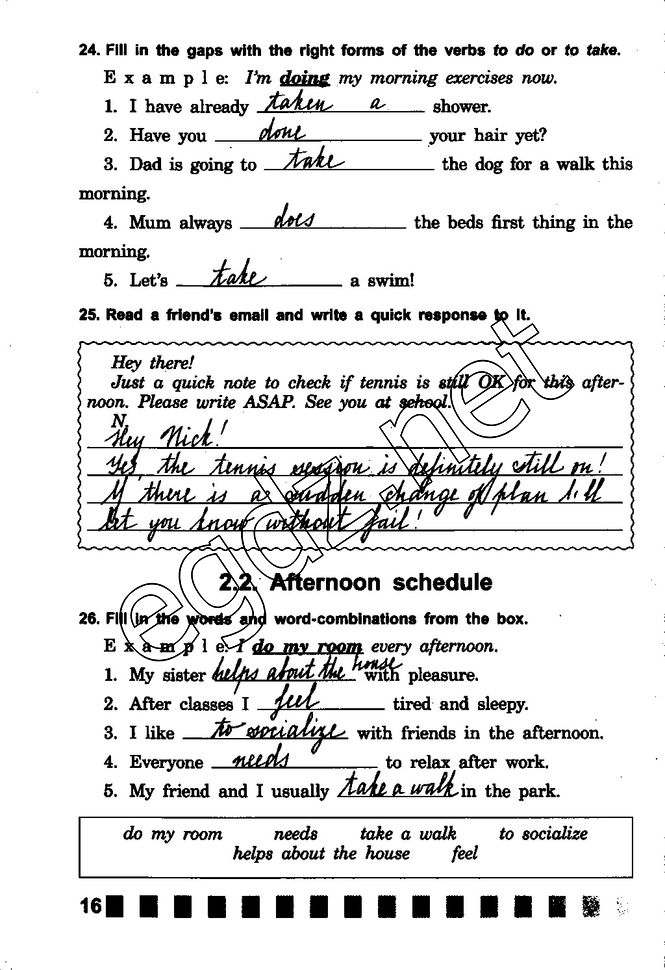 24. Fill in the gaps with the right forms of the verbs to do or to take.
E x a m p l e: I'm doing my morning exercises now.
1. I have already taken a shower.
2. Have you done your hair yet?
3. Dad is going to take the dog for a walk this
morning.
4. Mum always does the beds first thing in the
morning.
5. Let's take a swim!
25. Read a friend's email and write a quick response to it.
Hey there!
Just a quick note to check if tennis is still OK for this after-
noon. Please write ASAP. See you at school.
N.
Hey Nick!
Yes, the tennis session is definitely still on!
If there is a sudden change of plan I'll
let you know without fail!
2.2. Afternoon schedule
26. Fill in the words and word-combinations from the box.
E x a m p l e: I do my room every afternoon.
1. My sister helps about the house with pleasure.
2. After classes I feel tired and sleepy.
3. I like to socialize with friends in the afternoon.
4. Everyone needs to relax after work.
5. My friend and I usually take a walk in the park.
do my room needs take a walk to socialize
helps about the house feel
16
egdz.net